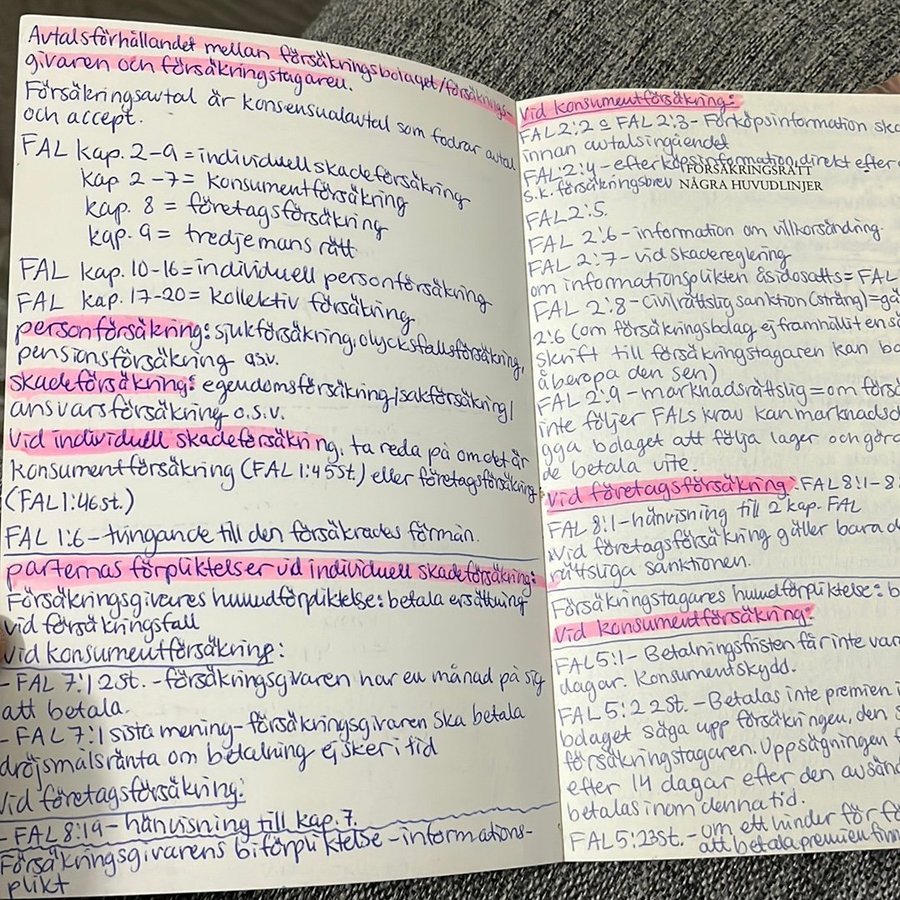 Avtalsförhållandet mellan försäkringsbolaget/försäkrings-
givaren och försäkringstagaren.
Försäkringsavtal är konsensualavtal som fodrar avtal
och accept.
FAL kap. 2-9 = individuell skadeförsäkring
kap 2-7 = konsumentförsäkring
kap. 8 = företagsförsäkring
kap. 9 = tredje mans rätt
FAL kap. 10-16 = individuell personförsäkring
FAL kap. 17-20 = kollektiv försäkring
personförsäkring: sjukförsäkring, olycksfallsförsäkring,
pensionsförsäkring osv.
skadeförsäkring: egendomsförsäkring/sakförsäkring/
ansvarsförsäkring o.s.v.
Vid individuell skadeförsäkring, ta reda på om det är
konsumentförsäkring (FAL 1:4 5st.) eller företagsförsäkring
(FAL 1:4 6st.)
FAL 1:6 - tvingande till den försäkrades förmån.
parternas förpliktelser vid individuell skadeförsäkring:
Försäkringsgivares huvudförpliktelse: betala ersättning
vid försäkringsfall
Vid konsumentförsäkring:
- FAL 7:1 2st. - försäkringsgivaren har en månad på sig
att betala.
- FAL 7:1 sista mening - försäkringsgivaren ska betala
dröjsmålsränta om betalning ej sker i tid
Vid företagsförsäkring:
- FAL 8:19 - hänvisning till kap. 7.
Försäkringsgivarens biförpliktelse - informations-
plikt
Vid konsumentförsäkring:
FAL 2:2 o FAL 2:3 - Förköpsinformation ska
innan avtalsingåendet
FAL 2:4 - efterköpsinformation direkt efter
s.k. försäkringsbrev
FÖRSÄKRINGSRÄTT
NÅGRA HUVUDLINJER
FAL 2:5.
FAL 2:6 - information om villkorsändring
FAL 2:7 - vid skadereglering
om informationsplikten åsidosatts = FAL
FAL 2:8 - civilrättslig sanktion (sträng) = gä
2:6 (om försäkringsbolag ej framhållit en så
skrift till försäkringstagaren kan bo
åberopa den sen)
FAL 2:9 - marknadsrättslig = om försä
inte följer FALs krav kan marknadsdo
gga bolaget att följa lagen och göra
de betala vite.
Vid företagsförsäkring: FAL 8:1-8
FAL 8:1 - hänvisning till 2 kap. FAL
Vid företagsförsäkring gäller bara d
rättsliga sanktionen.
Försäkringstagares huvudförpliktelse: b
Vid konsumentförsäkring:
FAL 5:1 - Betalningsfristen får inte var
dagar. Konsumentskydd.
FAL 5:2 2st. - Betalas inte premien i
bolaget säga upp försäkringen, den s
försäkringstagaren. Uppsägningen f
efter 14 dagar efter den avsänd
betalas inom denna tid.
FAL 5:2 3st. - om ett hinder för fö
att betala premien finn